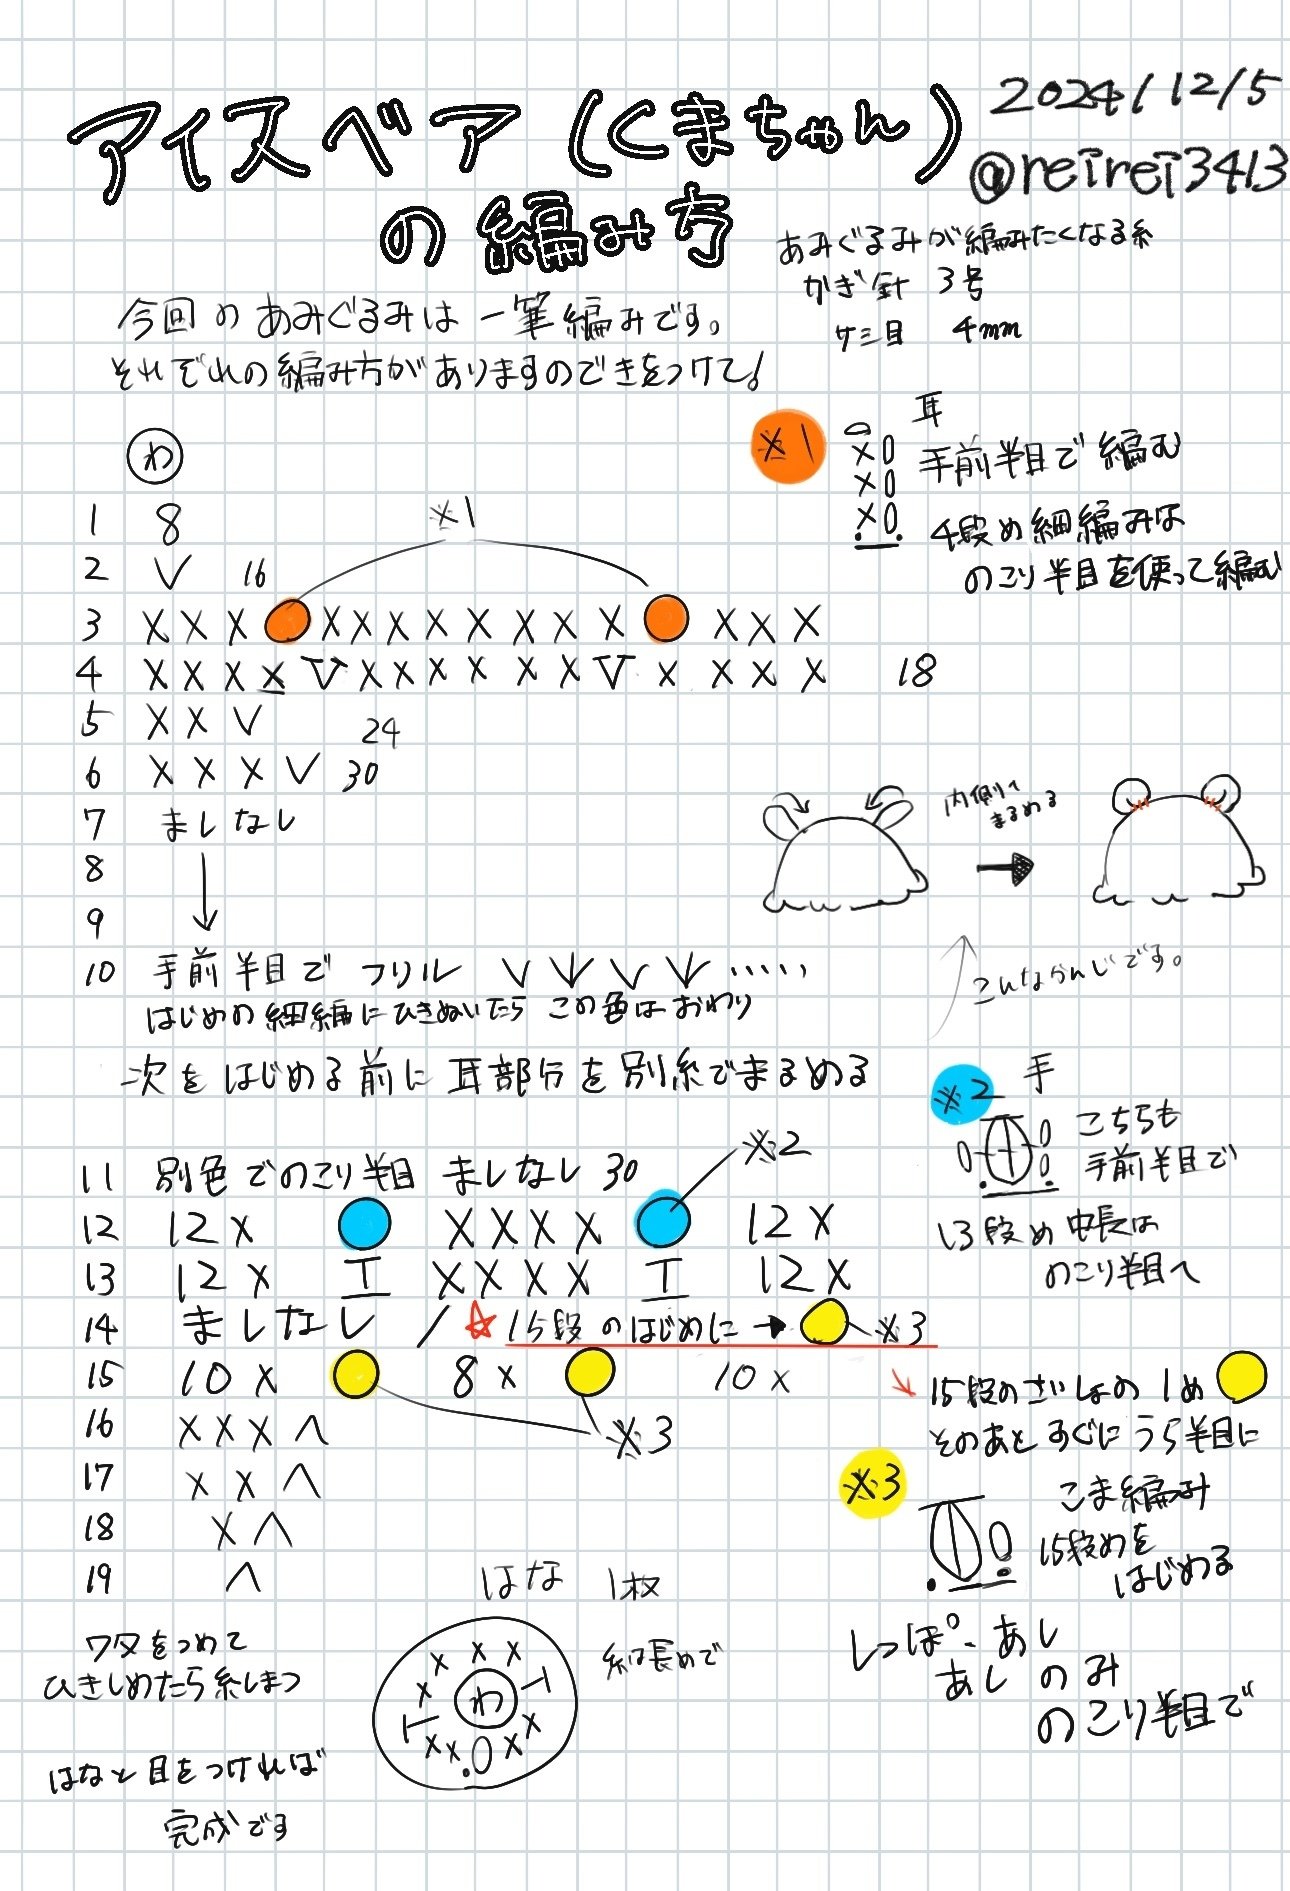 アイスベア(くまちゃん)
の編み方
2024/12/5
@reirei3413
あみぐるみが編みたくなる糸
かぎ針 3号
サシ目 4mm
今回のあみぐるみは一筆編みです。
それぞれの編み方がありますのできをつけて!
わ
※1 耳
手前半目で編む
X0
X0
X0
4段め細編みは
のこり半目を使って編む
1 8
※1
2 V 16
3 X X X X X X X X X X X X X X
4 X X X X V X X X X X X V X X X X 18
5 X X V 24
6 X X X V 30
7 ましなし
8
9
内側へ
まるめる
こんなかんじです。
10 手前半目で フリル V V V V ・・・・・
はじめの細編にひきぬいたら この色はおわり
次をはじめる前に耳部分を別糸でまるめる
※2 手
こちらも
手前半目で
13段め中長は
のこり半目へ
11 別色でのこり半目 ましなし 30
※2
12 12X X X X X 12X
13 12X T X X X X T 12X
14 ましなし / ☆15段のはじめに→ ※3
15 10X 8X 10X
※3
15段のさいしょの1め
そのあとすぐにうら半目に
こま編み
15段めを
はじめる
16 X X X ∧
17 X X ∧
18 X ∧
19 ∧
※3
しっぽ・あし
あしのみ
のこり半目で
はな 1枚
糸は長めで
わ
X X X X X X T X X X X T 0
ワタをつめて
ひきしめたら糸しまつ
はなと目をつければ
完成です